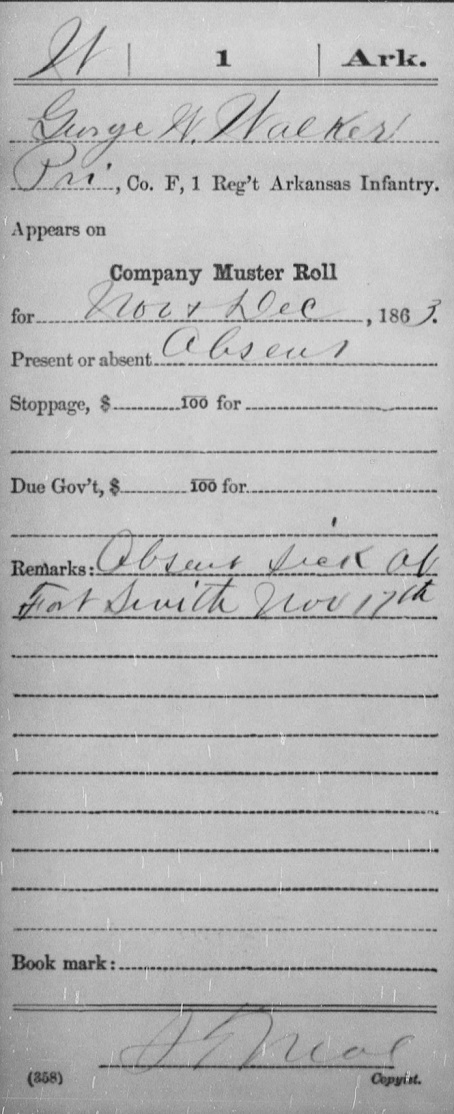 W | 1 | Ark.
George W. Walker
Pri, Co. F, 1 Reg't Arkansas Infantry.
Appears on
Company Muster Roll
for Nov & Dec, 1863.
Present or absent Absent
Stoppage, $ 100 for
Due Gov't, $ 100 for
Remarks: Absent sick at
Fort Smith Nov 17th
Book mark:
(358) Copyist.